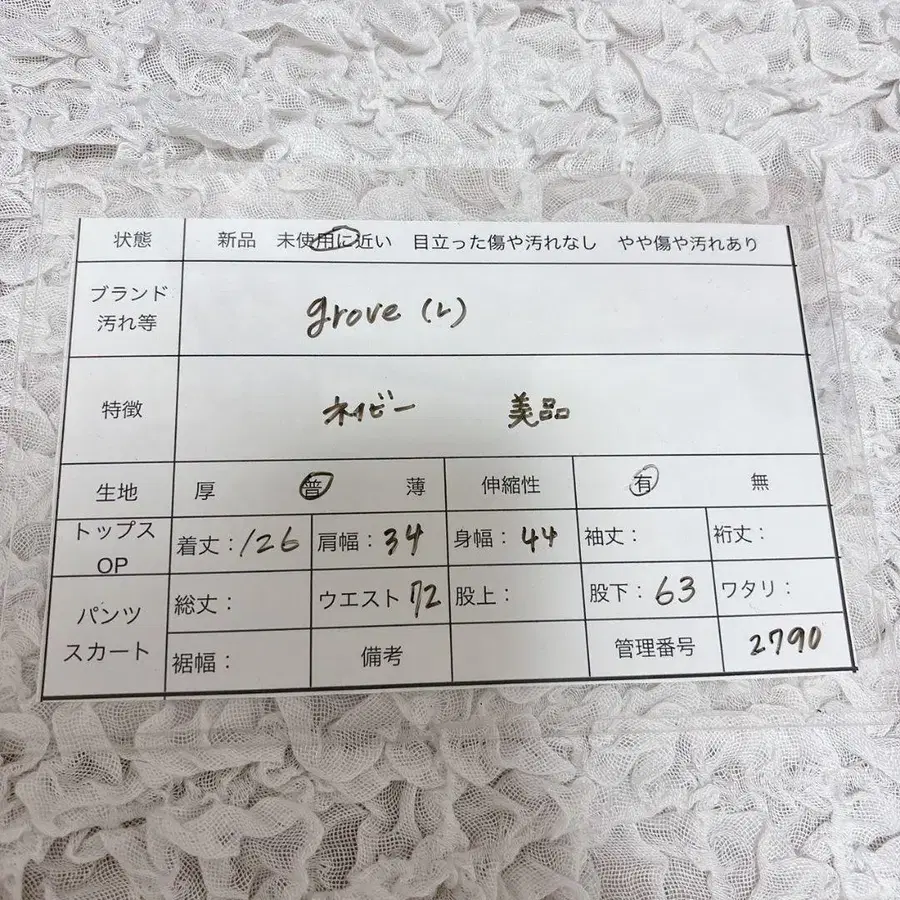 状態 新品 未使用に近い 目立った傷や汚れなし やや傷や汚れあり
ブランド
汚れ等
grove (L)
特徴 ネイビー 美品
生地 厚 普 薄 伸縮性 有 無
トップス
OP
着丈:126 肩幅:34 身幅:44 袖丈: 裄丈:
パンツ
スカート
総丈: ウエスト 72 股上: 股下:63 ワタリ:
裾幅: 備考 管理番号 2790